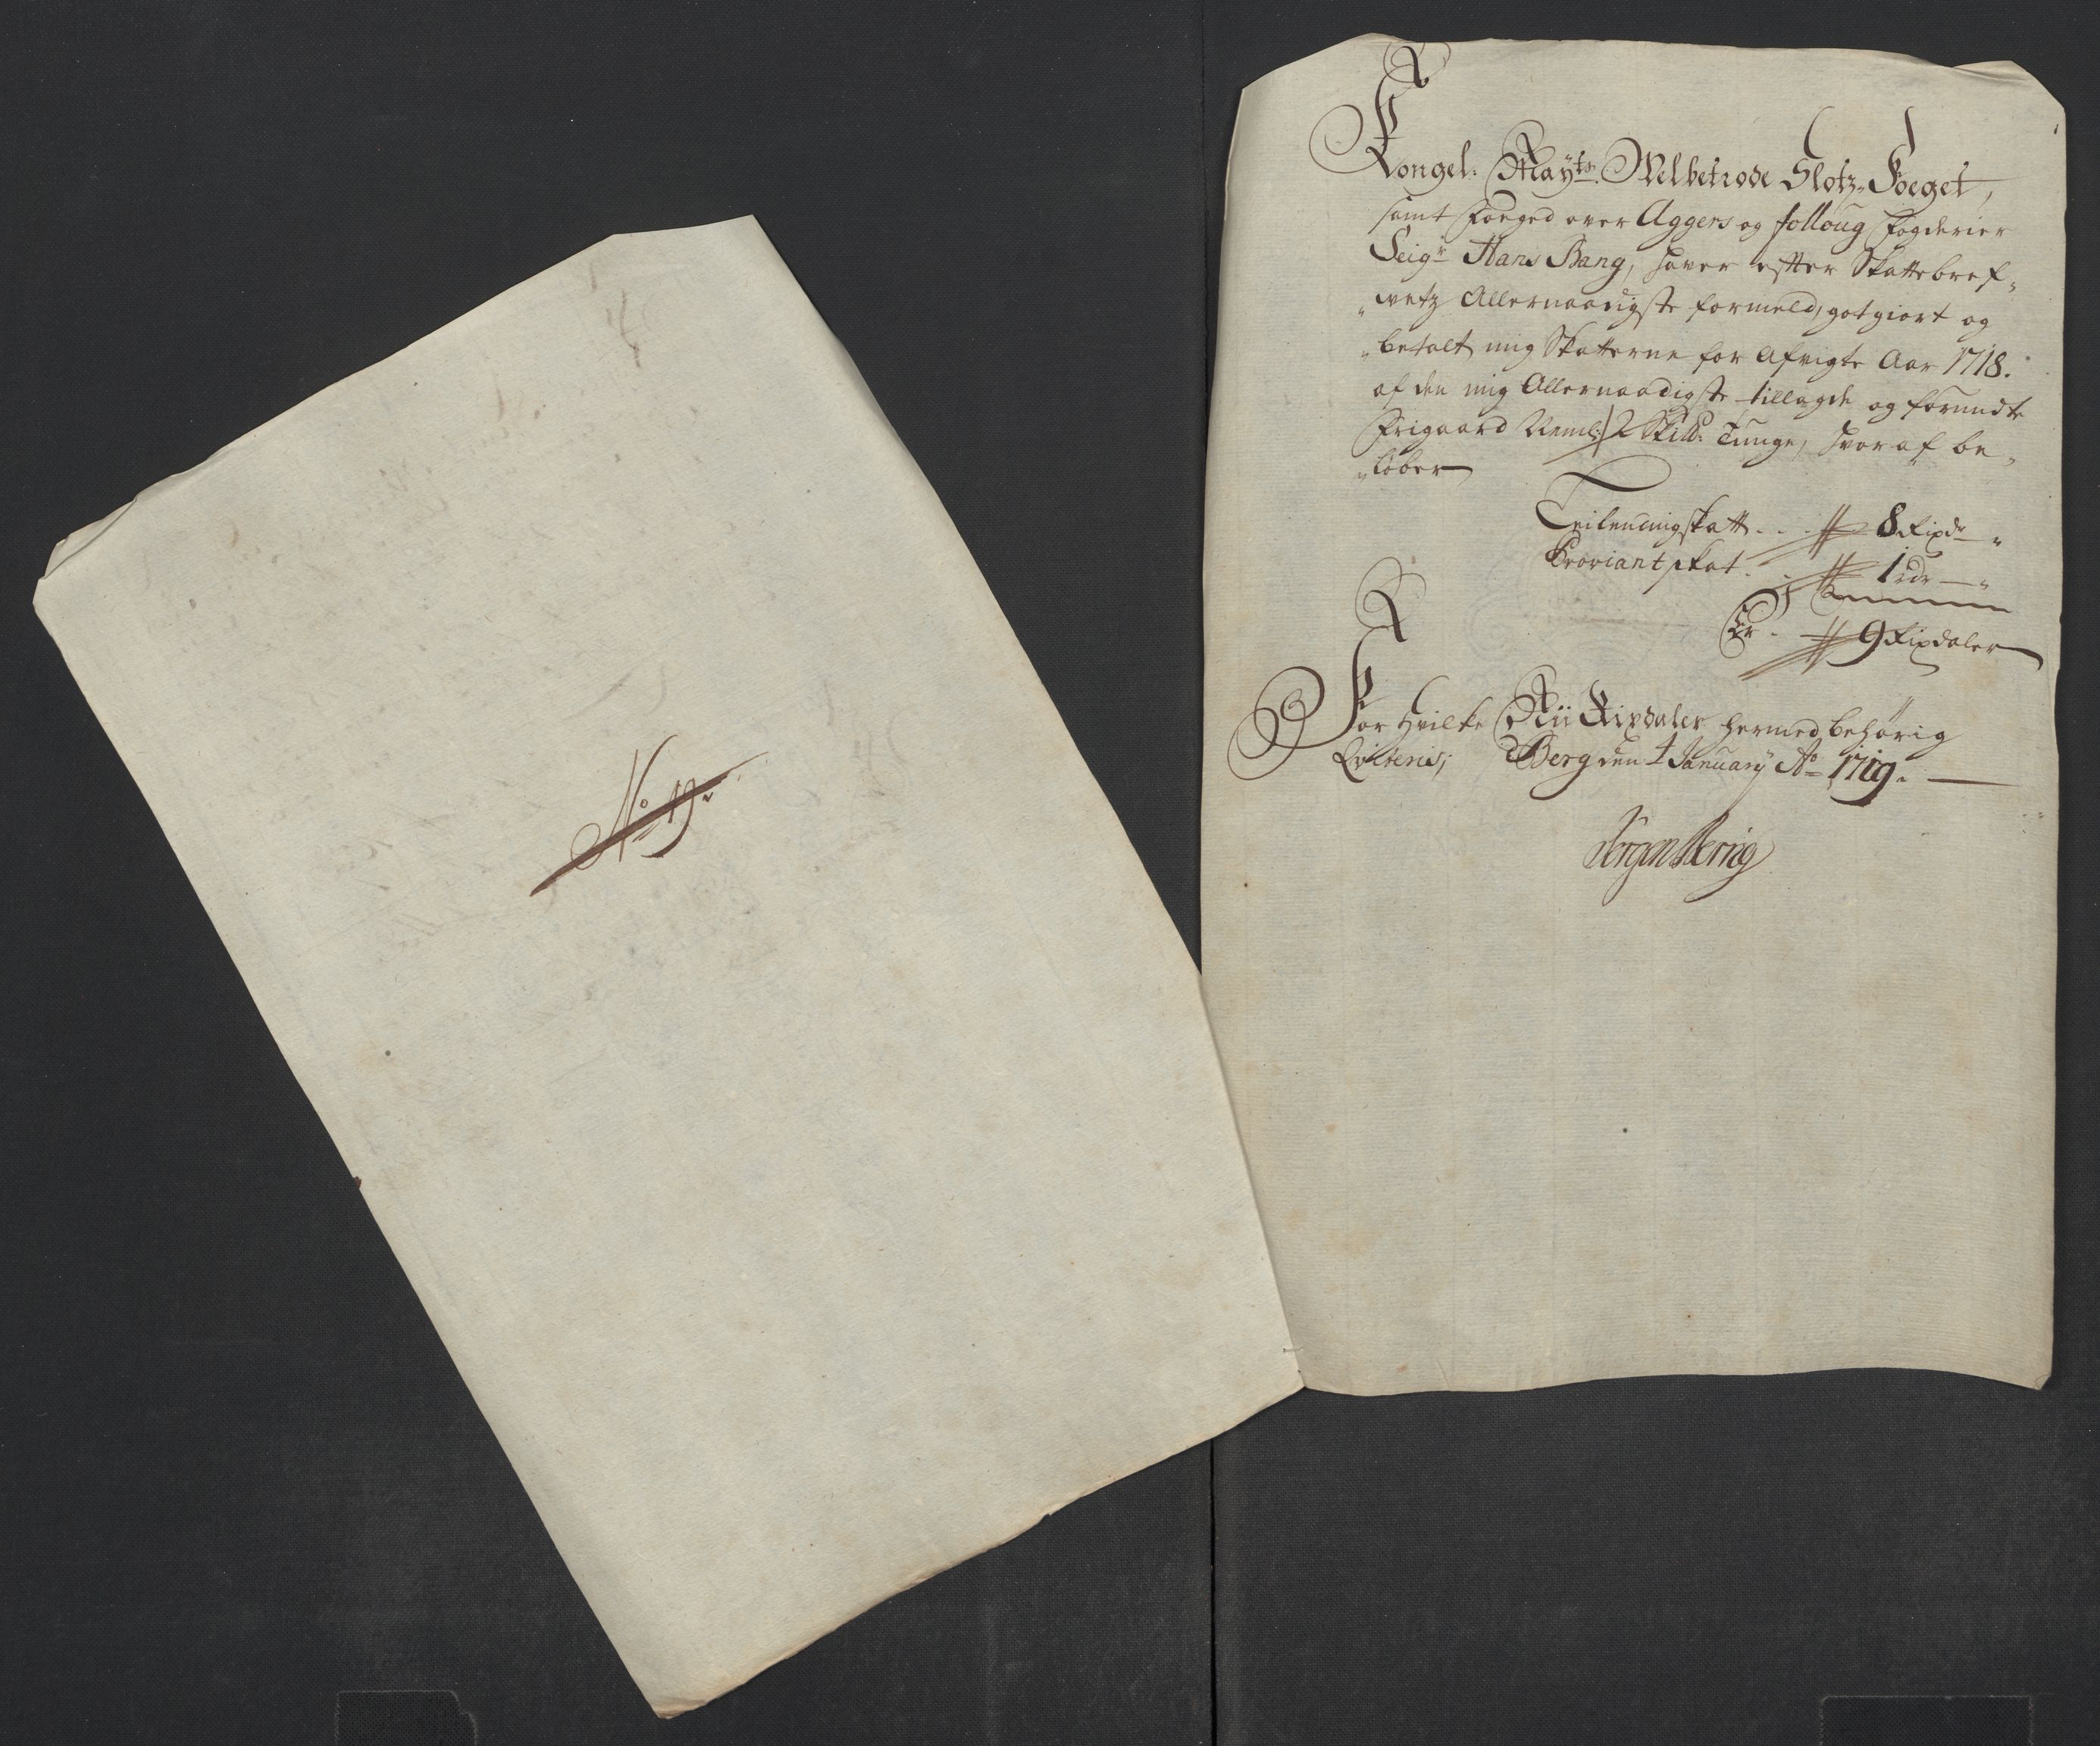 No 19.
Kongel: Mayts. Velbetrode Slotz-Foeget,
samt Foeged over Aggers og folloug Fogderier
Seigr Hans Bang, haver efter Skattebref-
"wetz Allernaadigste formeld, gotgiort og
"betalt mig Skatterne for Afvigte Aar 1718.
af den mig Allernaadigste tillagde og forundte
Frigaard Neml: 2 Skilb: Tunge, hvoraf be-
"løber
skatt . . . 8 Rixdr "
Proviantskat . . 1 rdr — "
Er . 9 Rixdaler
For hvilke Nii Rixdaler hermed behørig
Qvitteris; Berg den 4 January Ao 1719. —
Jørgen